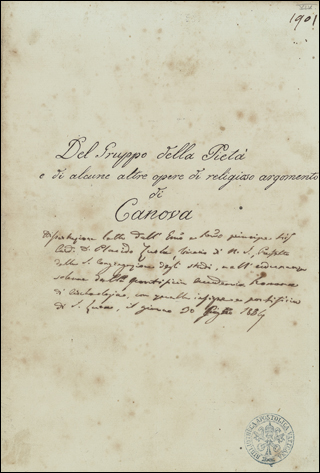 1901
Del Gruppo della Pietà
e di alcune altre opere di religioso argomento
di
Canova
Dissertazione letta dall' Emo e Rmo principe
Card. D. Placido Zurla, Vicario di N. S., Prefetto
della S. Congregazione degli studi, nell' adunanza
solenne della Pontificia Accademia Romana
di Archeologia, con quella insigne e pontificia
di S. Luca, il giorno
BIBLIOTECA APOSTOLICA VATICANA